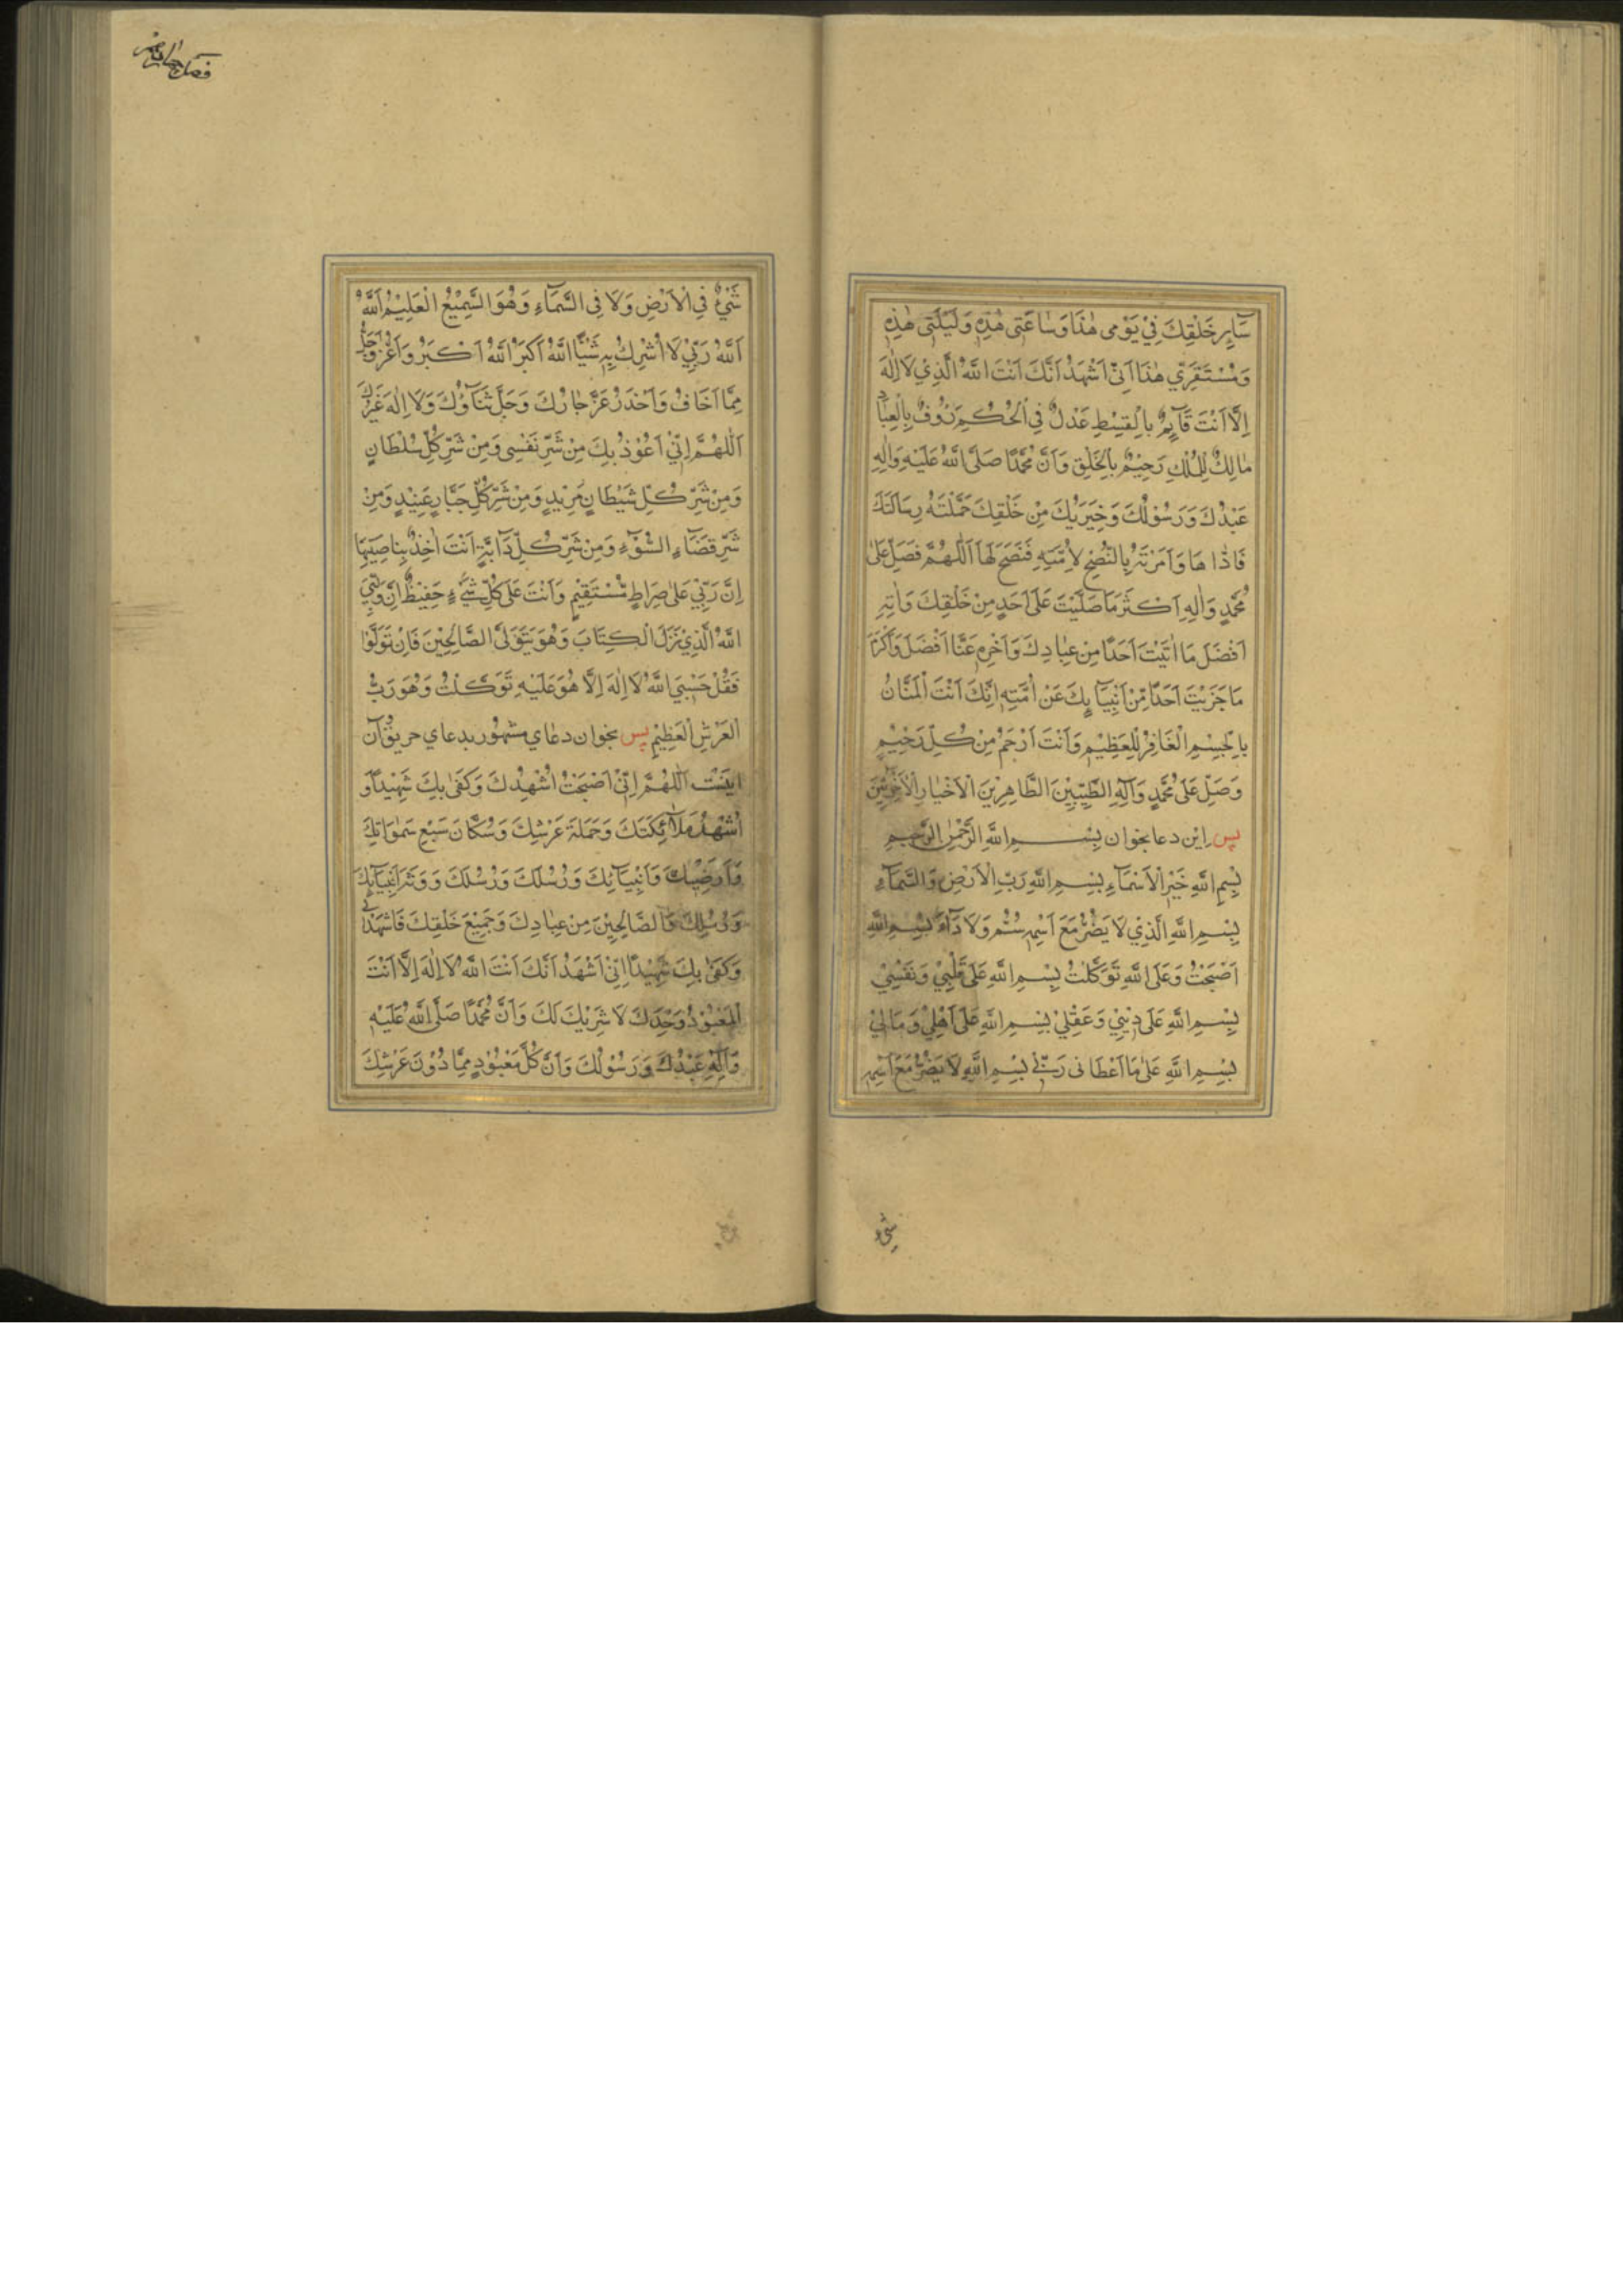 سَآيِرِ خَلْقِكَ فِيْ يَوْمِى هٰذَا وَسٰاعَتِى هٰذِهٖ وَلَيْلَتِى هٰذِهٖ
وَمُسْتَقَرِّي هٰذَا اَنِّىْ اَشْهَدُ اَنَّكَ اَنْتَ اللهُ الَّذِيْ لَا اِلٰهَ
اِلَّا اَنْتَ قَآئِمٌ بِالْقِسْطِ عَدْلٌ فِي الْحُكْمِ رَؤُوفٌ بِالْعِبَادِ
مٰالِكٌ لِلْمُلْكِ رَحِيْمٌ بِالْخَلْقِ وَاَنَّ مُحَمَّدًا صَلَّى اللهُ عَلَيْهِ وَاٰلِهِ
عَبْدُكَ وَرَسُوْلُكَ وَخِيَرَتُكَ مِنْ خَلْقِكَ حَمَّلْتَهُ رِسَالَتَكَ
فَاَدّٰاهَا وَاَمَرْتَهُ بِالنُّصْحِ لِاُمَّتِهِ فَنَصَحَ لَهَا اَللّٰهُمَّ فَصَلِّ عَلٰى
مُحَمَّدٍ وَاٰلِهِ اَكْثَرَ مَا صَلَّيْتَ عَلٰى اَحَدٍ مِنْ خَلْقِكَ وَاٰتِهِ
اَفْضَلَ مَا اٰتَيْتَ اَحَدًا مِنْ عِبَادِكَ وَاَجْزِهِ عَنَّا اَفْضَلَ وَاَكْرَمَ
مَا جَزَيْتَ اَحَدًا مِّنْ اَنْبِيَآيِكَ عَنْ اُمَّتِهٖ اِنَّكَ اَنْتَ الْمَنَّانُ
بِالْجَسِيْمِ الْغَافِرُ لِلْعَظِيْمِ وَاَنْتَ اَرْحَمُ مِنْ كُلِّ رَحِيْمٍ
وَصَلِّ عَلٰى مُحَمَّدٍ وَآلِهِ الطَّيِّبِيْنَ الطَّاهِرِيْنَ الْاَخْيَارِ الْاَنْجَبِيْنَ
پس اين دعا بخوان بِسْمِ اللهِ الرَّحْمٰنِ الرَّحِيْمِ
بِسْمِ اللهِ خَيْرِ الْاَسْمَآءِ بِسْمِ اللهِ رَبِّ الْاَرْضِ وَالسَّمَآءِ
بِسْمِ اللهِ الَّذِي لَا يَضُرُّ مَعَ اَسْمِهٖ سُمٌّ وَلَا دَآءٌ بِسْمِ اللهِ
اَصْبَحْتُ وَعَلَى اللهِ تَوَكَّلْتُ بِسْمِ اللهِ عَلٰى قَلْبِيْ وَنَفْسِيْ
بِسْمِ اللهِ عَلٰى دِيْنِيْ وَعَقْلِيْ بِسْمِ اللهِ عَلٰى اَهْلِيْ وَمَالِيْ
بِسْمِ اللهِ عَلٰى مَا اَعْطَانِى رَبِّىْ بِسْمِ اللهِ لَا يَضُرُّ مَعَ اَسْمِهٖ
شىء
شَيْءٌ فِي الْاَرْضِ وَلَا فِي السَّمَآءِ وَهُوَ السَّمِيْعُ الْعَلِيْمُ اَللهُ
اَللهُ رَبِّيْ لَا اُشْرِكُ بِهٖ شَيْئًا اَللهُ اَكْبَرُ اَللهُ اَكْبَرُ وَاَعَزُّ وَاَجَلُّ
مِمَّا اَخَافُ وَاَحْذَرُ عَزَّ جَارُكَ وَجَلَّ ثَنَآؤُكَ وَلَا اِلٰهَ غَيْرُكَ
اَللّٰهُمَّ اِنِّيْ اَعُوْذُ بِكَ مِنْ شَرِّ نَفْسِى وَمِنْ شَرِّ كُلِّ سُلْطَانٍ
وَمِنْ شَرِّ كُلِّ شَيْطَانٍ مَرِيْدٍ وَمِنْ شَرِّ كُلِّ جَبَّارٍ عَنِيْدٍ وَمِنْ
شَرِّ قَضَآءِ السُّوْءِ وَمِنْ شَرِّ كُلِّ دَآبَّةٍ اَنْتَ اٰخِذٌ بِنَاصِيَتِهَا
اِنَّ رَبِّيْ عَلٰى صِرَاطٍ مُّسْتَقِيْمٍ وَاَنْتَ عَلٰى كُلِّ شَيْءٍ حَفِيْظٌ اِنَّ وَلِيِّيَ
اللهُ الَّذِيْ نَزَّلَ الْكِتَابَ وَهُوَ يَتَوَلَّى الصَّالِحِيْنَ فَاِنْ تَوَلَّوْا
فَقُلْ حَسْبِيَ اللهُ لَا اِلٰهَ اِلَّا هُوَ عَلَيْهِ تَوَكَّلْتُ وَهُوَ رَبُّ
الْعَرْشِ الْعَظِيْمِ پس بخوان دعاى مشهور بدعاي حريق وآن
اينست اَللّٰهُمَّ اِنِّىْ اَصْبَحْتُ اُشْهِدُكَ وَكَفٰى بِكَ شَهِيْدًا وَ
اُشْهِدُ مَلَآئِكَتَكَ وَحَمَلَةَ عَرْشِكَ وَسُكَّانَ سَبْعِ سَمٰوَاتِكَ
وَاَرَضِيْكَ وَاَنْبِيَآئِكَ وَرُسُلَكَ وَرُسُلَكَ وَوَرَثَةَ اَنْبِيَآئِكَ
وَرُسُلِكَ وَالصَّالِحِيْنَ مِنْ عِبَادِكَ وَجَمِيْعَ خَلْقِكَ فَاشْهَدْ لِىْ
وَكَفٰى بِكَ شَهِيْدًا اِنِّىْ اَشْهَدُ اَنَّكَ اَنْتَ اللهُ لَا اِلٰهَ اِلَّا اَنْتَ
الْمَعْبُوْدُ وَحْدَكَ لَا شَرِيْكَ لَكَ وَاَنَّ مُحَمَّدًا صَلَّى اللهُ عَلَيْهِ
وَآلِهِ عَبْدُكَ وَرَسُوْلُكَ وَاَنَّ كُلَّ مَعْبُوْدٍ مِمَّا دُوْنَ عَرْشِكَ